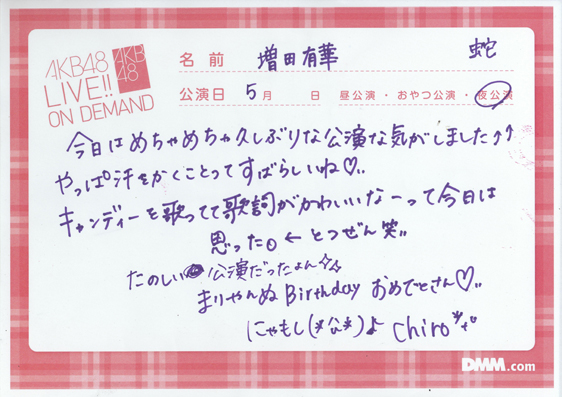 AKB48
LIVE!!
ON DEMAND
AKB
48
名前 増田有華 蛇
公演日 5月 日 昼公演・おやつ公演・夜公演
今日はめちゃめちゃ久しぶりな公演な気がしました↑↑
やっぱ汗をかくことってすばらしいね♡..
キャンディーを歌ってて歌詞がかわいいなーって今日は
思った。←とつぜん笑..
たのしい 公演だったよん☆☆
まりやんぬBirthday おめでとさん♡..
にゃもし(*公*)♪ chiro
DMM.com